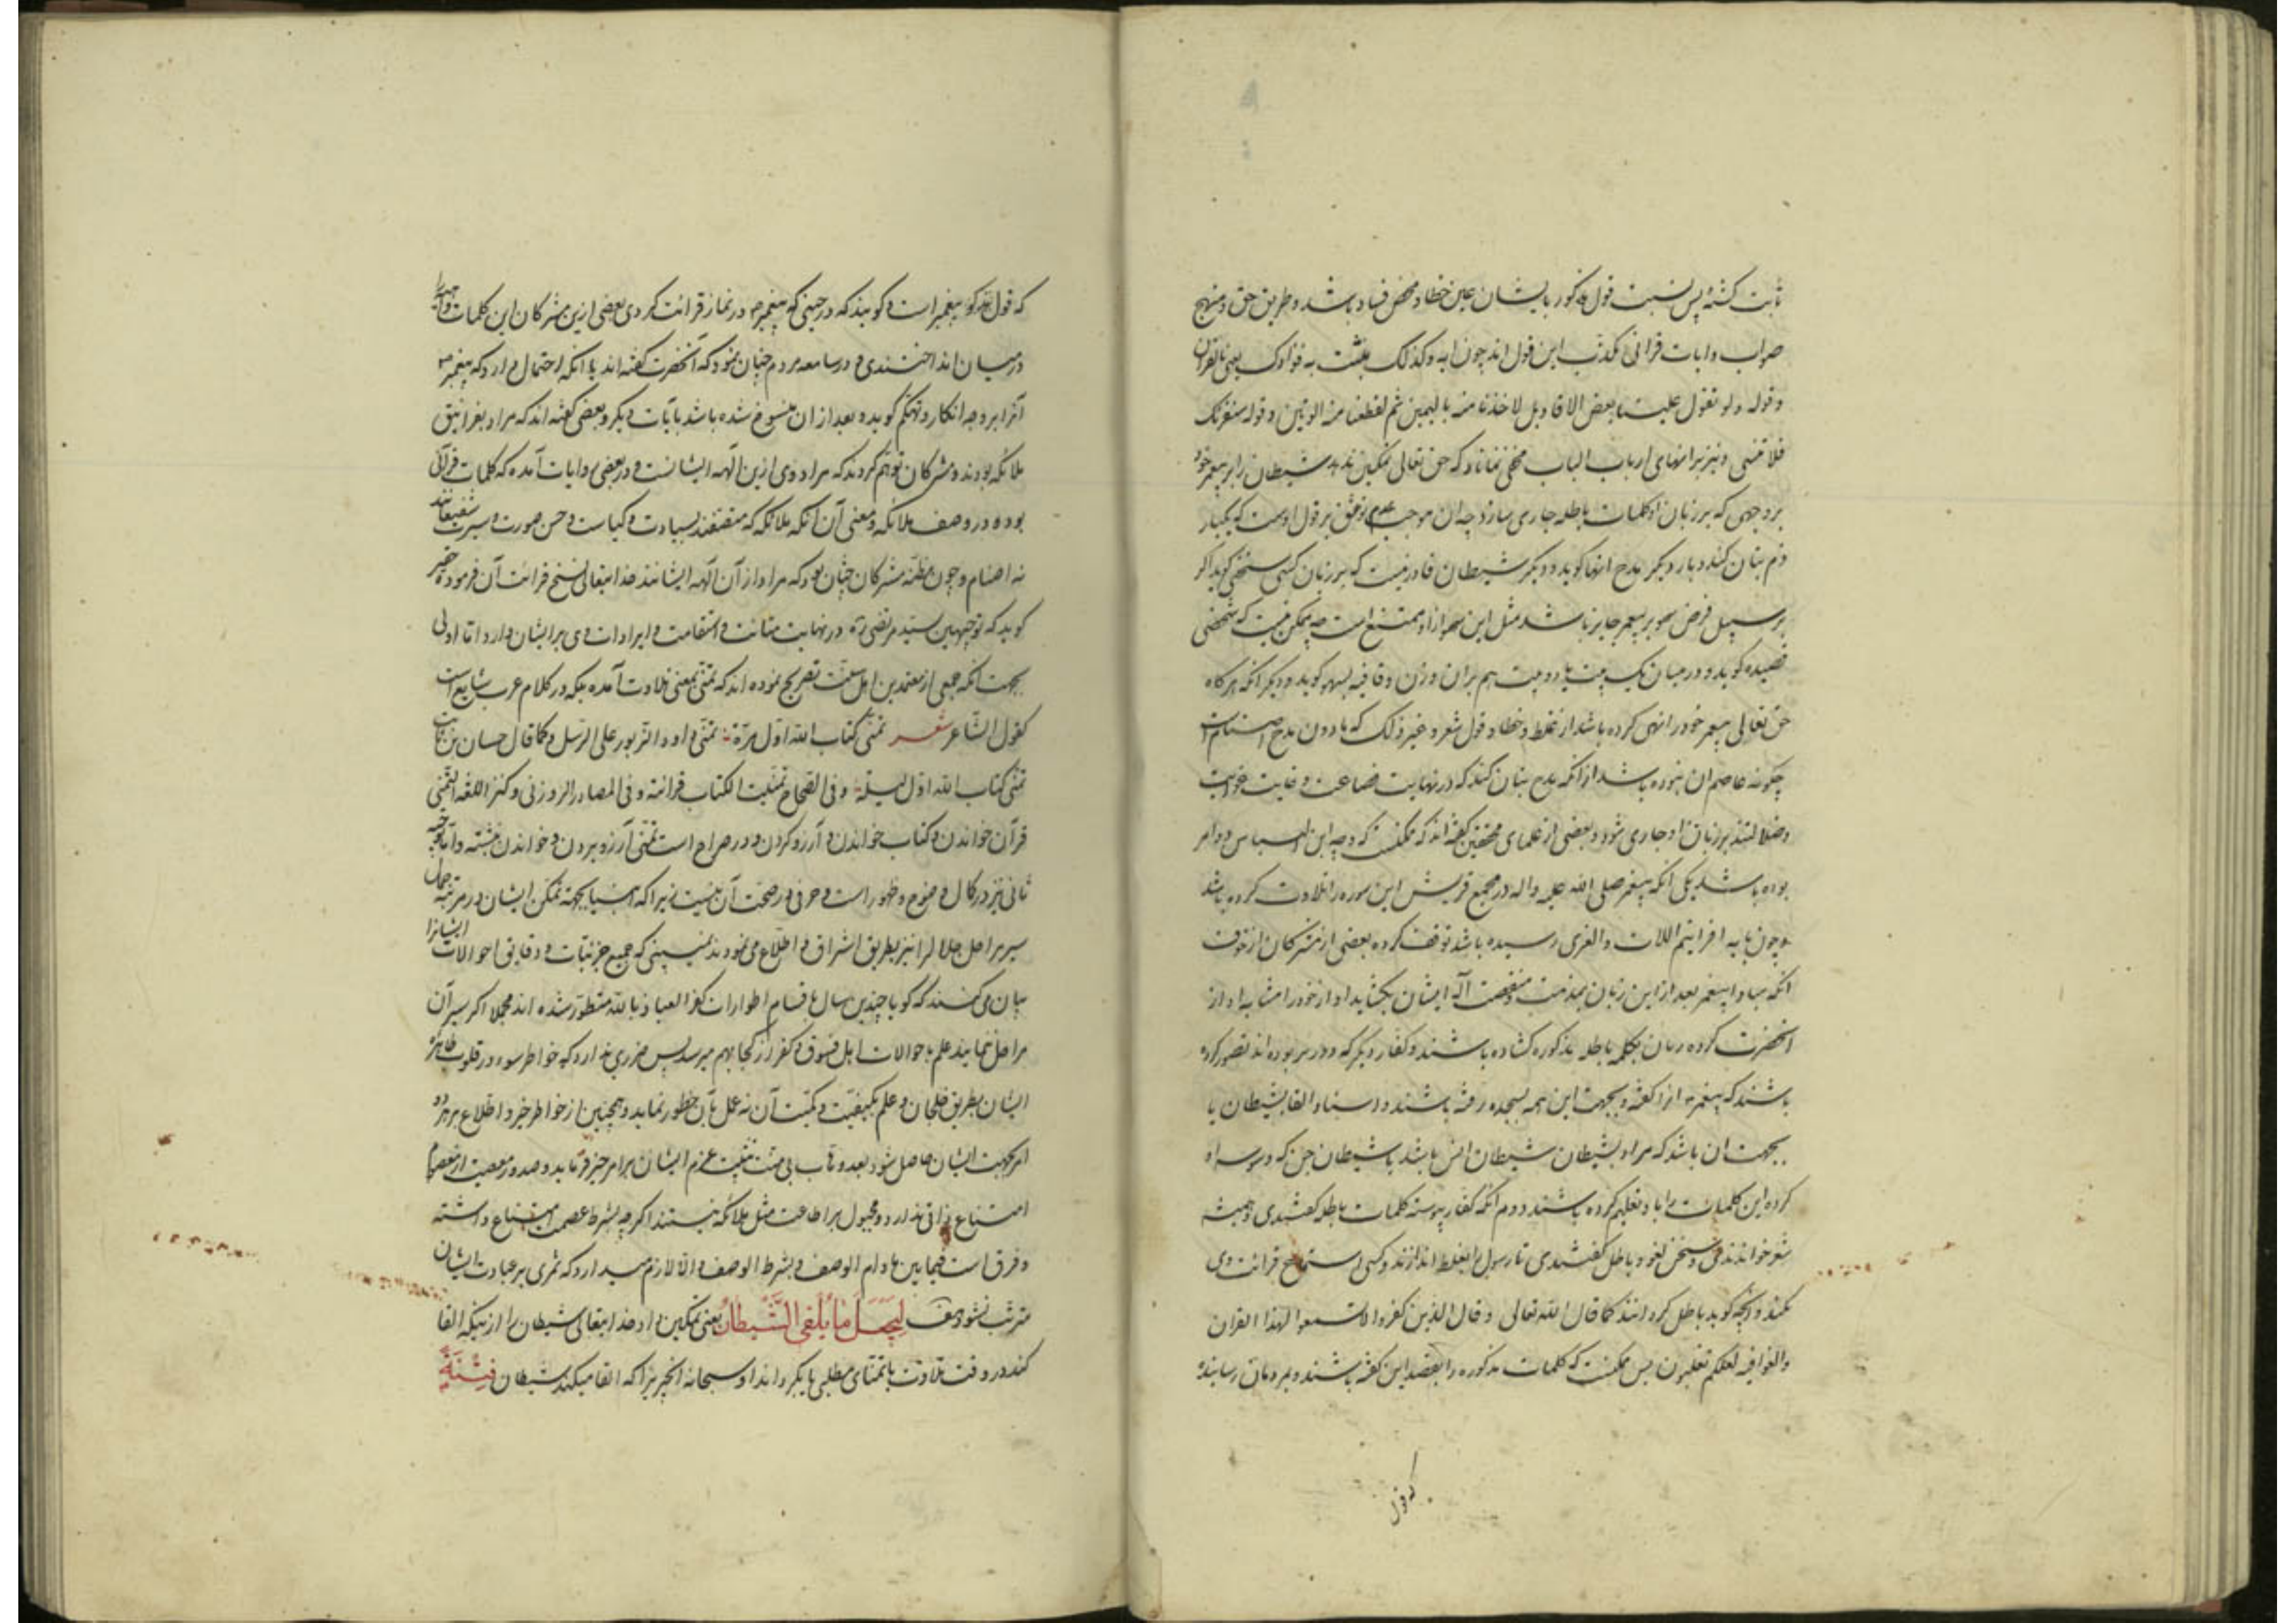 ثابت کشته پس نسبت قول مذکور بایشان عین خطا و محض فساد باشد و طریق حق و منهج
صواب و ایات قرانی مکذب این قول اند چون ایه وکذلک لنثبت به فؤادک یعنی بالقران
وقوله ولو تقول علینا بعض الاقاویل لاخذنا منه بالیمین ثم لقطعنا منه الوتین وقوله سنقرئک
فلا تنسی و نیز بر انهای ارباب الباب مخفی نماناد که حق تعالی تمکین ندهد شیطان را بر پیغمبر خود
بر وجهی که بر زبان او کلمات باطله جاری سازد چه ان موجب عدم توثق بر قول اوست که یکبار
ذم بتان کند و بار دیگر مدح انها کوید و دیگر شیطان قادر نیست که بر زبان کسی سخنی کوید اکر
بر سبیل فرض سهو بر پیغمبر جایز باشد مثل این سهو ازاو ممتنع است چه ممکن نیست که شخصی
قصیده کوید و در میان یک بیت یا دو بیت هم بران وزن و قافیه بسهو کوید و دیکر انکه هر کاه
حق تعالی پیغمبر خود را نهی کرده باشد از غلط و خطا و قول شعر و غیر ذلک که مادون مدح اصنام است
چکونه عاصم ان نبوده باشد از انکه مدح بتان کند که در نهایت ضاعت و غایت غوایت
و ضلالتند بر زبان او جاری شود و بعضی از علمای محققین کفته اند که ممکنست که وجه این التباس دو امر
بوده باشد یکی انکه پیغمبر صلی الله علیه واله در مجمع قریش این سوره را تلاوت کرده باشد
و چون بایه افرایتم اللات والعزی رسیده باشد توقف کرده بعضی از مشرکان از خوف
انکه مبادا پیغمبر بعد از این زبان بمذمت و منقصت آلهه ایشان بکشاید اواز خود را مشابه اواز
انحضرت کرده زبان بکلمه باطله مذکوره کشاده باشند و کفار دیگر که دورتر بوده اند تصور کرده
باشند که پیغمبر انرا کفته و بجهت این همه بسجده رفته باشند و اسناد القا بشیطان یا
بجهت ان باشد که مراد بشیطان شیطان انس باشد یا شیطان جن که وسوسه او
کرده این کلمات را باو تعلیم کرده باشند دوم انکه کفار پیوسته کلمات باطله کفتندی و همیشه
شعر خواندندی و سخن لغو و باطل کفتندی تا رسول را بغلط اندازند و کسی استماع قرائت وی
نکند و انچه کوید باطل کردانند کما قال الله تعالی وقال الذین کفروا لا تسمعوا لهذا القران
والغوا فیه لعلکم تغلبون پس ممکنست که کلمات مذکوره را بقصد این کفته باشند و بمردمان رسانیده
که قول
که قول مذکور پیغمبر است و کویند که در حینی که پیغمبر در نماز قرائت کردی بعضی ازین مشرکان این کلمات را
در میان انداختندی و در سامعه مردم چنان نمود که آنحضرت کفته اند یا انکه احتمال دارد که پیغمبر
آنرا بر وجه انکار و تهکم کوید و بعد از ان منسوخ شده باشد بآیات دیکر و بعضی کفته اند که مراد بغرانیق
ملائکه بودند و مشرکان توهم کردند که مراد وی ازین الهه ایشانست و در بعضی روایات آمده که کلمات قرآنی
بوده در وصف ملائکه و معنی آن آنکه ملائکه که متصفند بسیادت و کیاست و حسن صورت و سیرت شفیعانند
نه اصنام و چون مظنه مشرکان چنان بود که مراد از آن آلهه ایشانند خدایتعالی نسخ قرائت آن فرموده حقیر
کوید که توجیهین سید مرتضی ره در نهایت متانت و استقامت و ایرادات وی بر ایشان وارد اما اولی
بجهت آنکه جمعی از معتمدین اهل لغت تصریح نموده اند که تمنی بمعنی تلاوت آمده بلکه در کلام عرب شایع است
کقول الشاعر شعر تمنی کتاب الله اول مرة تمنی داود الزبور علی الرسل وکما قال حسان بن ثابت
تمنی کتاب الله اول لیلة وفی الصحاح تمنیت الکتاب قرائته وفی المصادر الزوزنی وکنز اللغه التمنی
قرآن خواندن و کتاب خواندن و آرزو کردن و در صراح است تمنی آرزو بردن و خواندن نبشته و اما توجیه
ثانی نیز در کمال وضوح و ظهور است و حرفی در صحت آن نیست زیرا که انبیا بجهة تمکن ایشان در مرتبه جمال
سیر مراحل جلال را نیز بطریق اشراف و اطلاع می نمودند نمی بینی که جمیع جزئیات و دقایق احوالات ایشانرا
بیان می کنند که کویا چندین سال باقسام اطوارات کفر العیاذ بالله متطور شده اند مجملا اکر سیر آن
مراحل ننمایند علم باحوالات اهل فسوق و کفر از کجا بهم میرسد پس ضرری ندارد که خواطر سوء در قلوب طاهرهٔ
ایشان بطریق خلجان و علم بکیفیت و کمیت آن نه عمل بآن خطور نماید و همچنین از خواطر خیر و اطلاع بر هر دو
امر بجهت ایشان حاصل شود بعده وهاب بی منت تثبیت عزم ایشان بر امر خیر فرماید و صدور معصیت از معصوم
امتناع ذاتی ندارد و مجبول بر اطاعت مثل ملائکه نیستند اکرچه بشرط عصمت امتناع داشته
و فرق است فیمابین مادام الوصف و بشرط الوصف و الا لازم میدارد که ثمری بر عبادت ایشان
مترتب نشود لِیَجْعَلَ مَا یُلْقِی الشَّیْطَانُ یعنی تمکین داد خدایتعالی شیطان را از نیکه القا
کند در وقت تلاوت یا تمنای مطلبی یا بکرداند او سبحانه آنچیزیرا که القا میکند شیطان فِتْنَةً